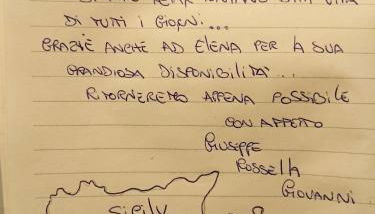 DI TUTTI I GIORNI...
GRAZIE ANCHE AD ELENA PER LA SUA
GRANDIOSA DISPONIBILITÀ...
RITORNEREMO APPENA POSSIBILE
CON AFFETTO
GIUSEPPE
ROSSELLA
GIOVANNI
Sicily